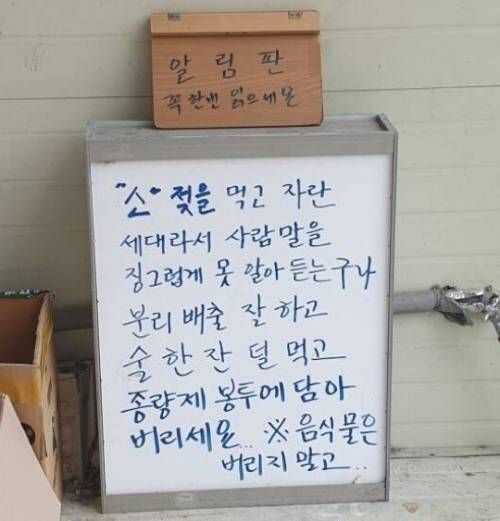 알림판
꼭 한번 읽으세요
"소" 젖을 먹고 자란
세대라서 사람 말을
징그럽게 못 알아 듣는구나
분리 배출 잘 하고
술 한 잔 덜 먹고
종량제 봉투에 담아
버리세요.. ※ 음식물은
버리지 말고..